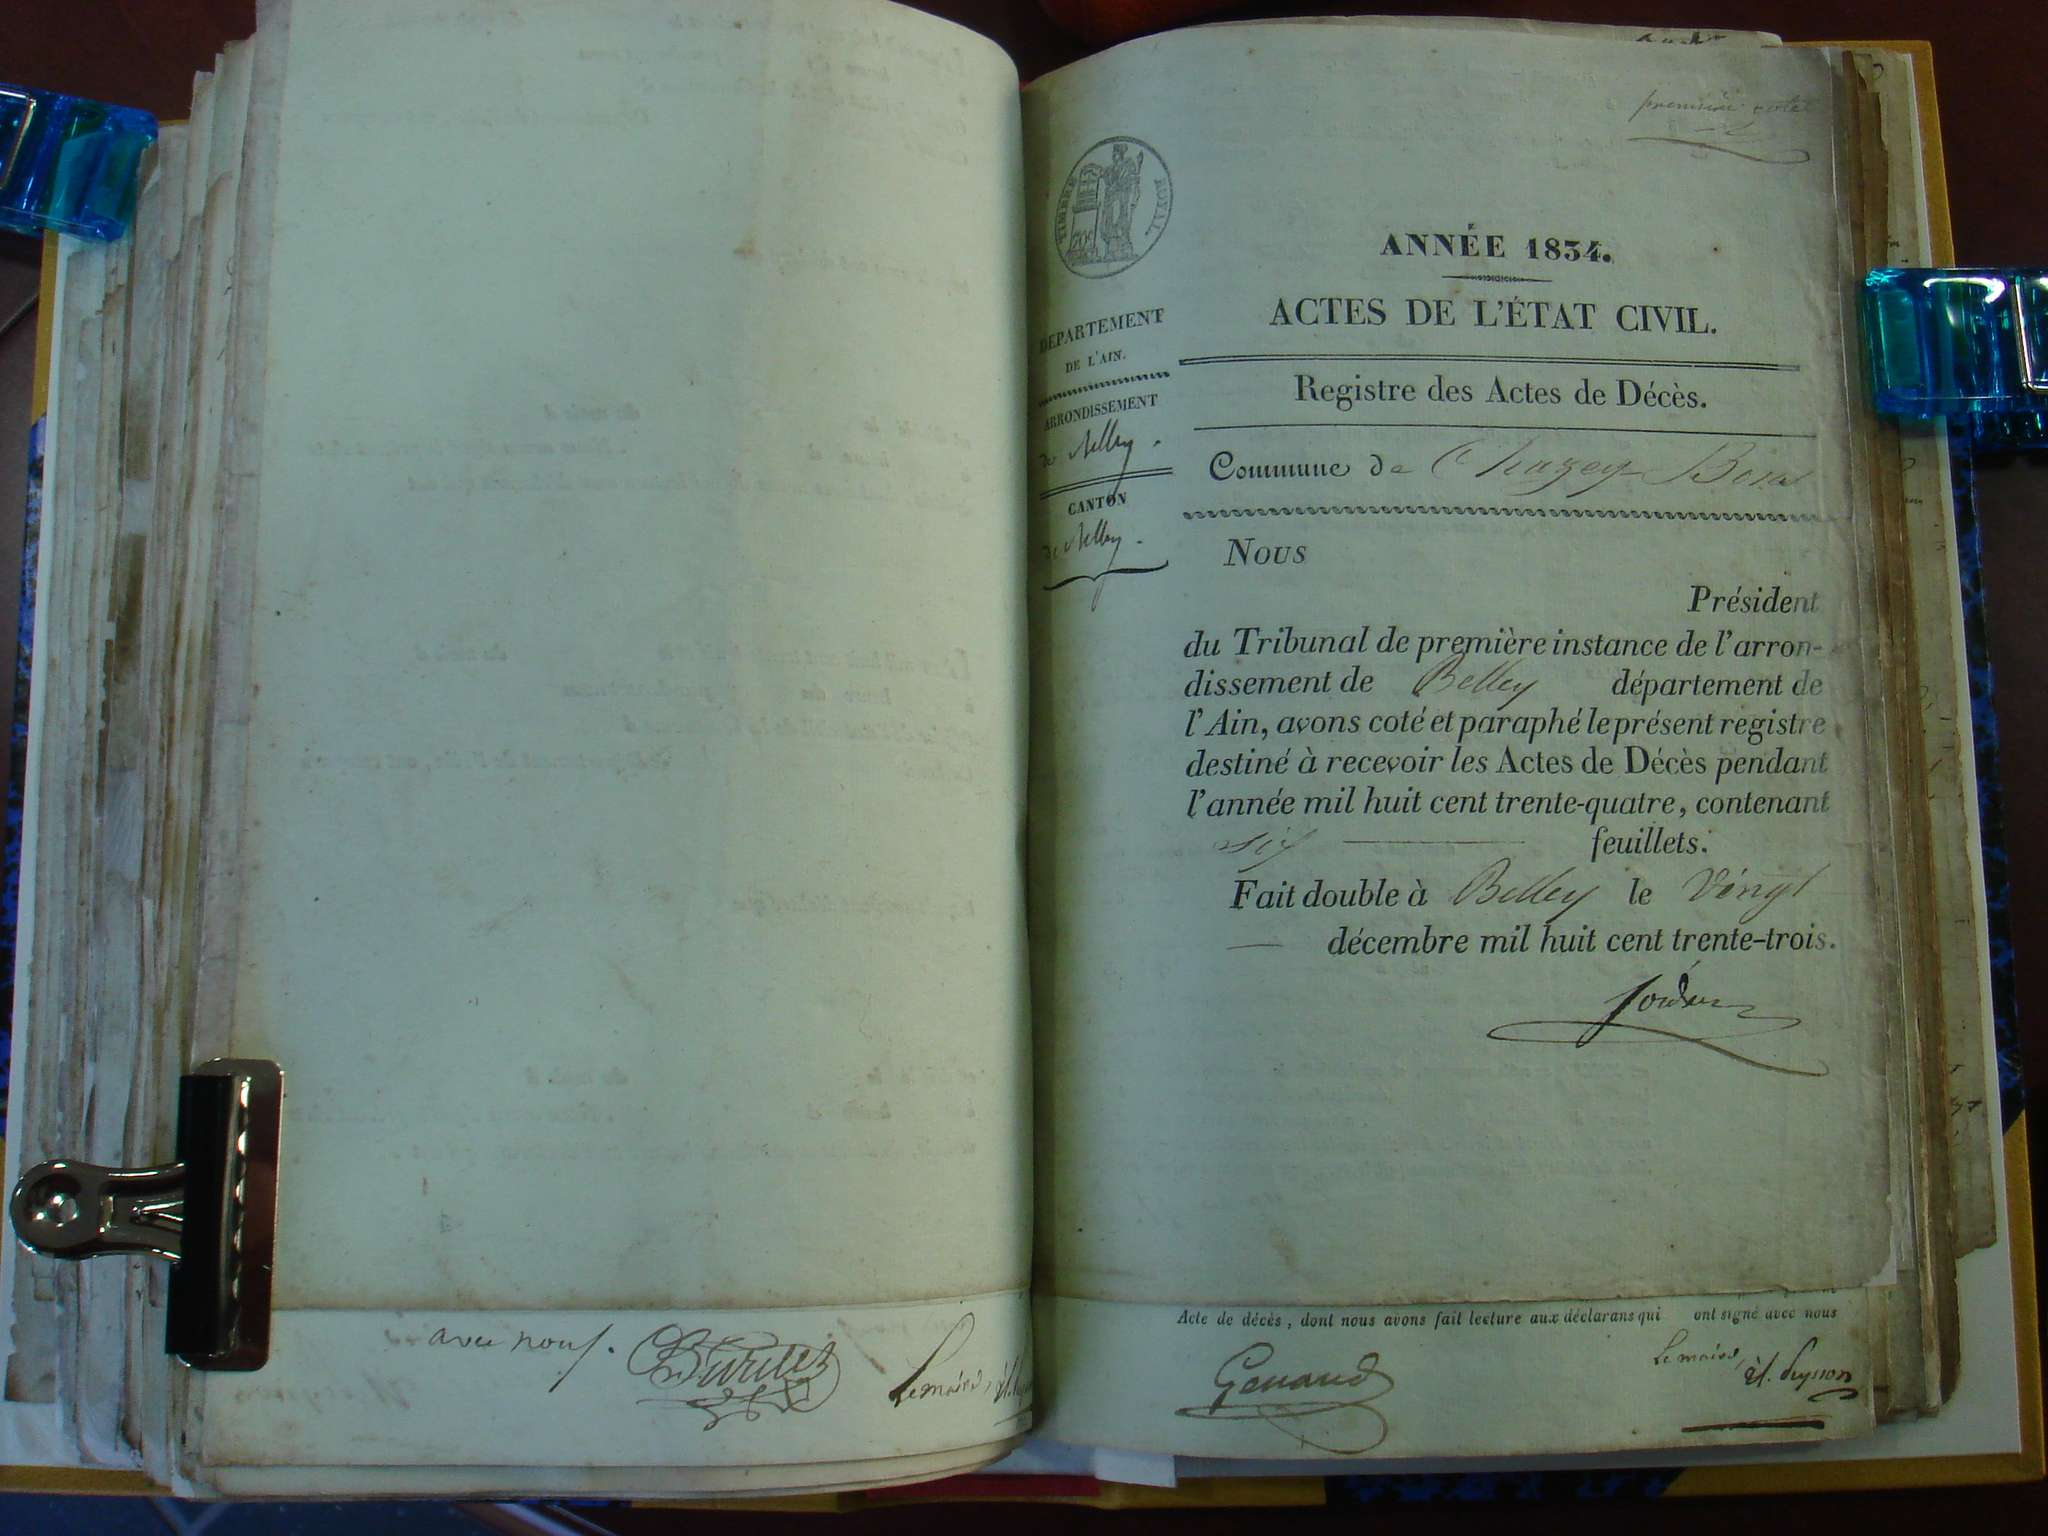 avec nous.
Le maire,
première
TIMBRE ROYAL
ANNÉE 1834.
ACTES DE L'ÉTAT CIVIL.
DÉPARTEMENT
DE L'AIN.
ARRONDISSEMENT
de Belley.
CANTON
de Belley.
Registre des Actes de Décès.
Commune de Chazey-Bons
Nous
Président
du Tribunal de première instance de l'arron-
dissement de Belley département de
l'Ain, avons coté et paraphé le présent registre
destiné à recevoir les Actes de Décès pendant
l'année mil huit cent trente-quatre, contenant
six feuillets.
Fait double à Belley le vingt
décembre mil huit cent trente-trois.
Acte de décès, dont nous avons fait lecture aux déclarans qui ont signé avec nous
Genand
Le maire,